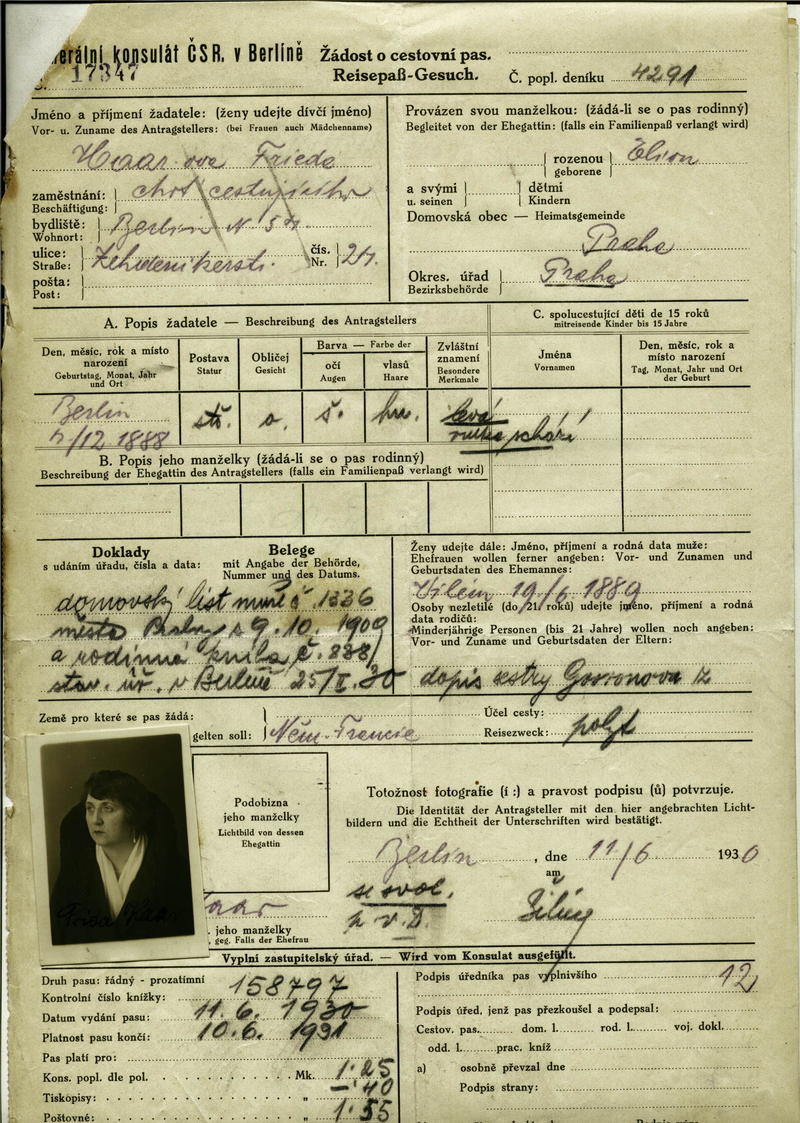 erální konsulát ČSR. v Berlíně
17347
Žádost o cestovní pas.
Reisepaß-Gesuch.
Č. popl. deníku 4291
Jméno a příjmení žadatele: (ženy udejte dívčí jméno)
Vor- u. Zuname des Antragstellers: (bei Frauen auch Mädchenname)
Haarová Frieda
zaměstnání:
Beschäftigung:
choť cestujícího
bydliště:
Wohnort:
Berlin N 54.
ulice:
Straße:
Zehdenikerstr.
čís.
Nr.
24.
pošta:
Post:
Provázen svou manželkou: (žádá-li se o pas rodinný)
Begleitet von der Ehegattin: (falls ein Familienpaß verlangt wird)
rozenou
geborene
Elion
a svými
u. seinen
dětmi
Kindern
Domovská obec — Heimatsgemeinde
Praha
Okres. úřad
Bezirksbehörde
Praha
A. Popis žadatele — Beschreibung des Antragstellers
C. spolucestující děti do 15 roků
mitreisende Kinder bis 15 Jahre
Den, měsíc, rok a místo
narození
Geburtstag, Monat, Jahr
und Ort
Postava
Statur
Obličej
Gesicht
Barva — Farbe der
očí
Augen
vlasů
Haare
Zvláštní
znamení
Besondere
Merkmale
Jména
Vornamen
Den, měsíc, rok a
místo narození
Tag, Monat, Jahr und Ort
der Geburt
Berlin
/12 1888
stř. o. š. hn.
levá
ruka schází
B. Popis jeho manželky (žádá-li se o pas rodinný)
Beschreibung der Ehegattin des Antragstellers (falls ein Familienpaß verlangt wird)
Doklady
s udáním úřadu, čísla a data:
Belege
mit Angabe der Behörde,
Nummer und des Datums.
domovský list muže č. 1336
města Prahy z 9. 10. 1909
a rodinná kniha č. 838/
stav. úř. v Berlíně 25/II. 30
Ženy udejte dále: Jméno, příjmení a rodná data muže:
Ehefrauen wollen ferner angeben: Vor- und Zunamen und
Geburtsdaten des Ehemannes:
Vilém 19/6 1889
Osoby nezletilé (do 21 roků) udejte jméno, příjmení a rodná
data rodičů:
Minderjährige Personen (bis 21 Jahre) wollen noch angeben:
Vor- und Zuname und Geburtsdaten der Eltern:
dopis sestry
Země pro které se pas žádá:
gelten soll:
Něm. Francie
Účel cesty:
Reisezweck:
pobyt
Podobizna
jeho manželky
Lichtbild von dessen
Ehegattin
Totožnost fotografie (í :) a pravost podpisu (ů) potvrzuje.
Die Identität der Antragsteller mit den hier angebrachten Licht-
bildern und die Echtheit der Unterschriften wird bestätigt.
Berlin, dne 11/6 1930
am
Frida Haar
jeho manželky
geg. Falls der Ehefrau
Vyplní zastupitelský úřad. — Wird vom Konsulat ausgefüllt.
Druh pasu: řádný - prozatímní
Kontrolní číslo knížky: 158797
Datum vydání pasu: 11. 6. 1930
Platnost pasu končí: 10. 6. 1931
Pas platí pro:
Kons. popl. dle pol. Mk. 1·25
Tiskopisy: „ —·40
Poštovné: „ 1·55
Podpis úředníka pas vyplnivšího 12
Podpis úřed. jenž pas přezkoušel a podepsal:
Cestov. pas. dom. l. rod. l. voj. dokl.
odd. l. prac. kníž
a) osobně převzal dne
Podpis strany: